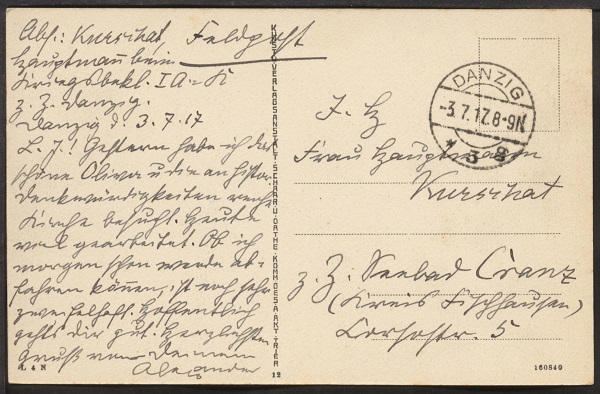 Abs.: Kurschat,
Hauptmann beim
Kriegsbekl. I A = K
z. Z. Danzig.
Danzig d. 3.7.17
L. J.! Gestern habe ich das
schöne Oliva u. die an histor.
Denkwürdigkeiten reiche
Kirche besucht. Heute
voll gearbeitet. Ob ich
morgen schon werde ab-
fahren können, ist noch sehr
zweifelhaft. Hoffentlich
gehts dir gut. Herzlichsten
Gruß von Deinem
Alexander
L 4 N
Feldpost
KUNSTVERLAGSANSTALT SCHAAR & DATHE KOMM. GES. A. AKT. TRIER
12
DANZIG
-3.7.17.8-9N
* 3 g
Frau Hauptmann
Kurschat
z. Z. Seebad Cranz
(Kreis Fischhausen)
Corsostr. 5
160849